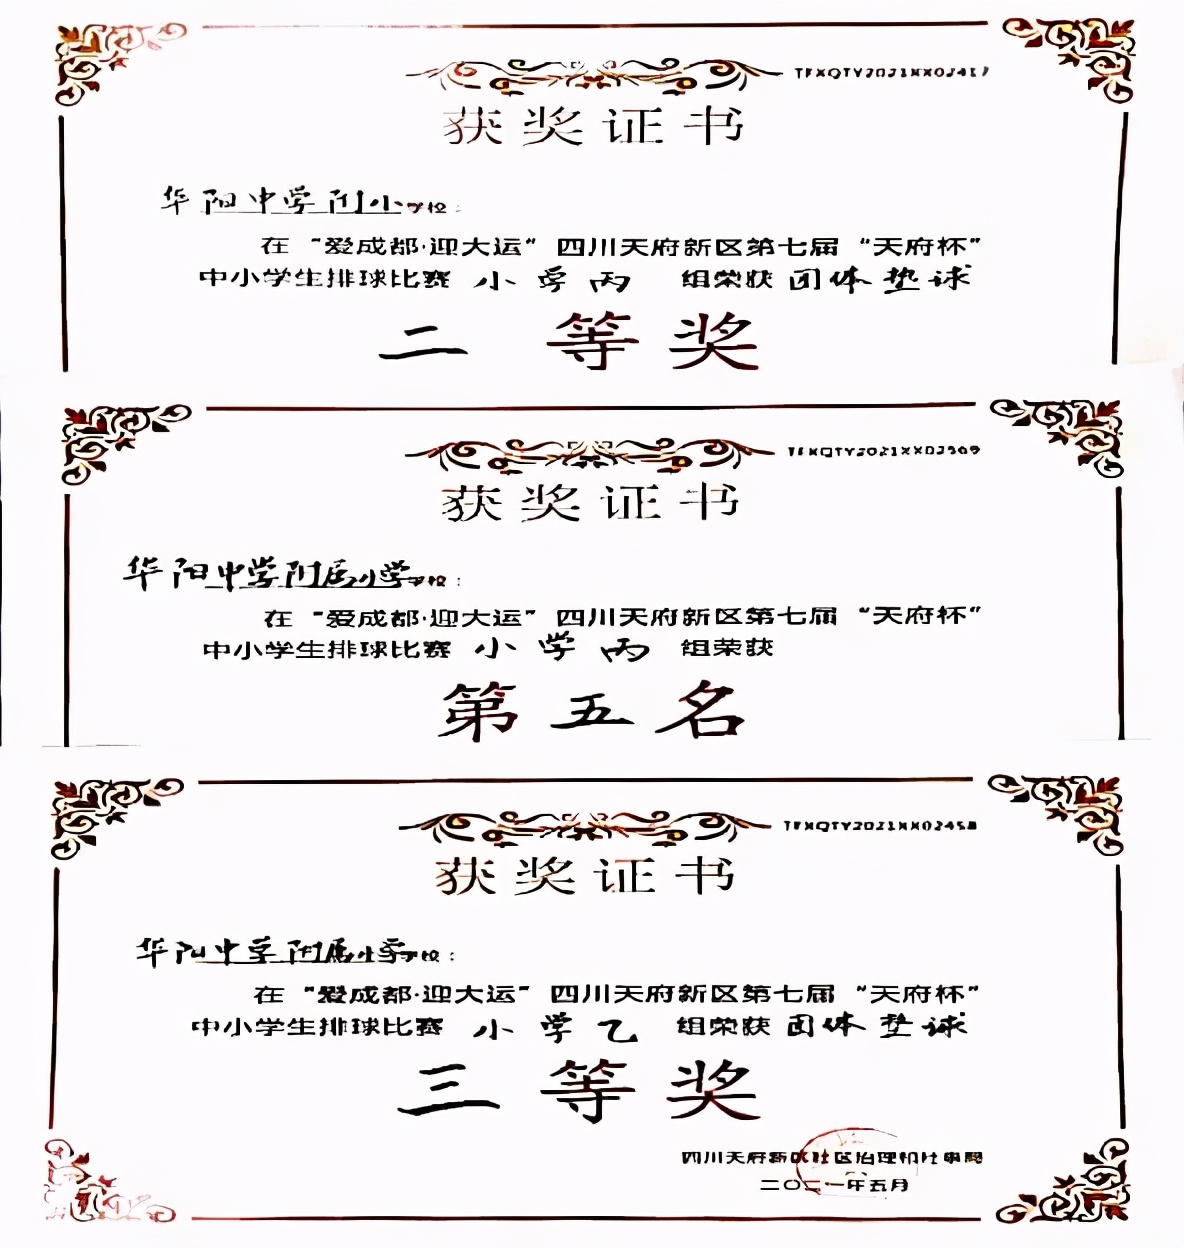 TFXQTY2021XX02417
获奖证书
华阳中学附小学校:
在“爱成都·迎大运”四川天府新区第七届“天府杯”
中小学生排球比赛 小学丙 组荣获 团体垫球
二等奖
TFXQTY2021XX02509
获奖证书
华阳中学附属小学学校:
在“爱成都·迎大运”四川天府新区第七届“天府杯”
中小学生排球比赛 小学丙 组荣获
第五名
TFXQTY2021XX02458
获奖证书
华阳中学附属小学学校:
在“爱成都·迎大运”四川天府新区第七届“天府杯”
中小学生排球比赛 小学乙 组荣获 团体垫球
三等奖
四川天府新区社区治理和社事局
二〇二一年五月